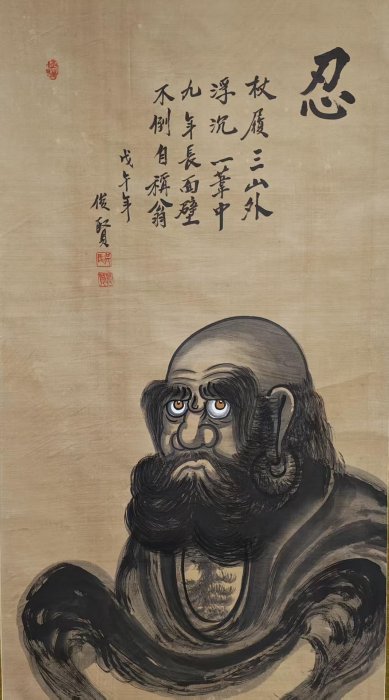 忍
杖履三山外
浮沉一葦中
九年長面壁
不倒自稱翁
戊午年
俊賢